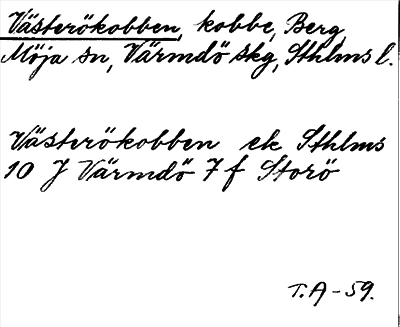 Västerökobben, kobbe, Berg,
Möja sn, Värmdö skg, Sthlms l.
Västerökobben ek Sthlms
10 J Värmdö 7 f Storö
T.A-59.